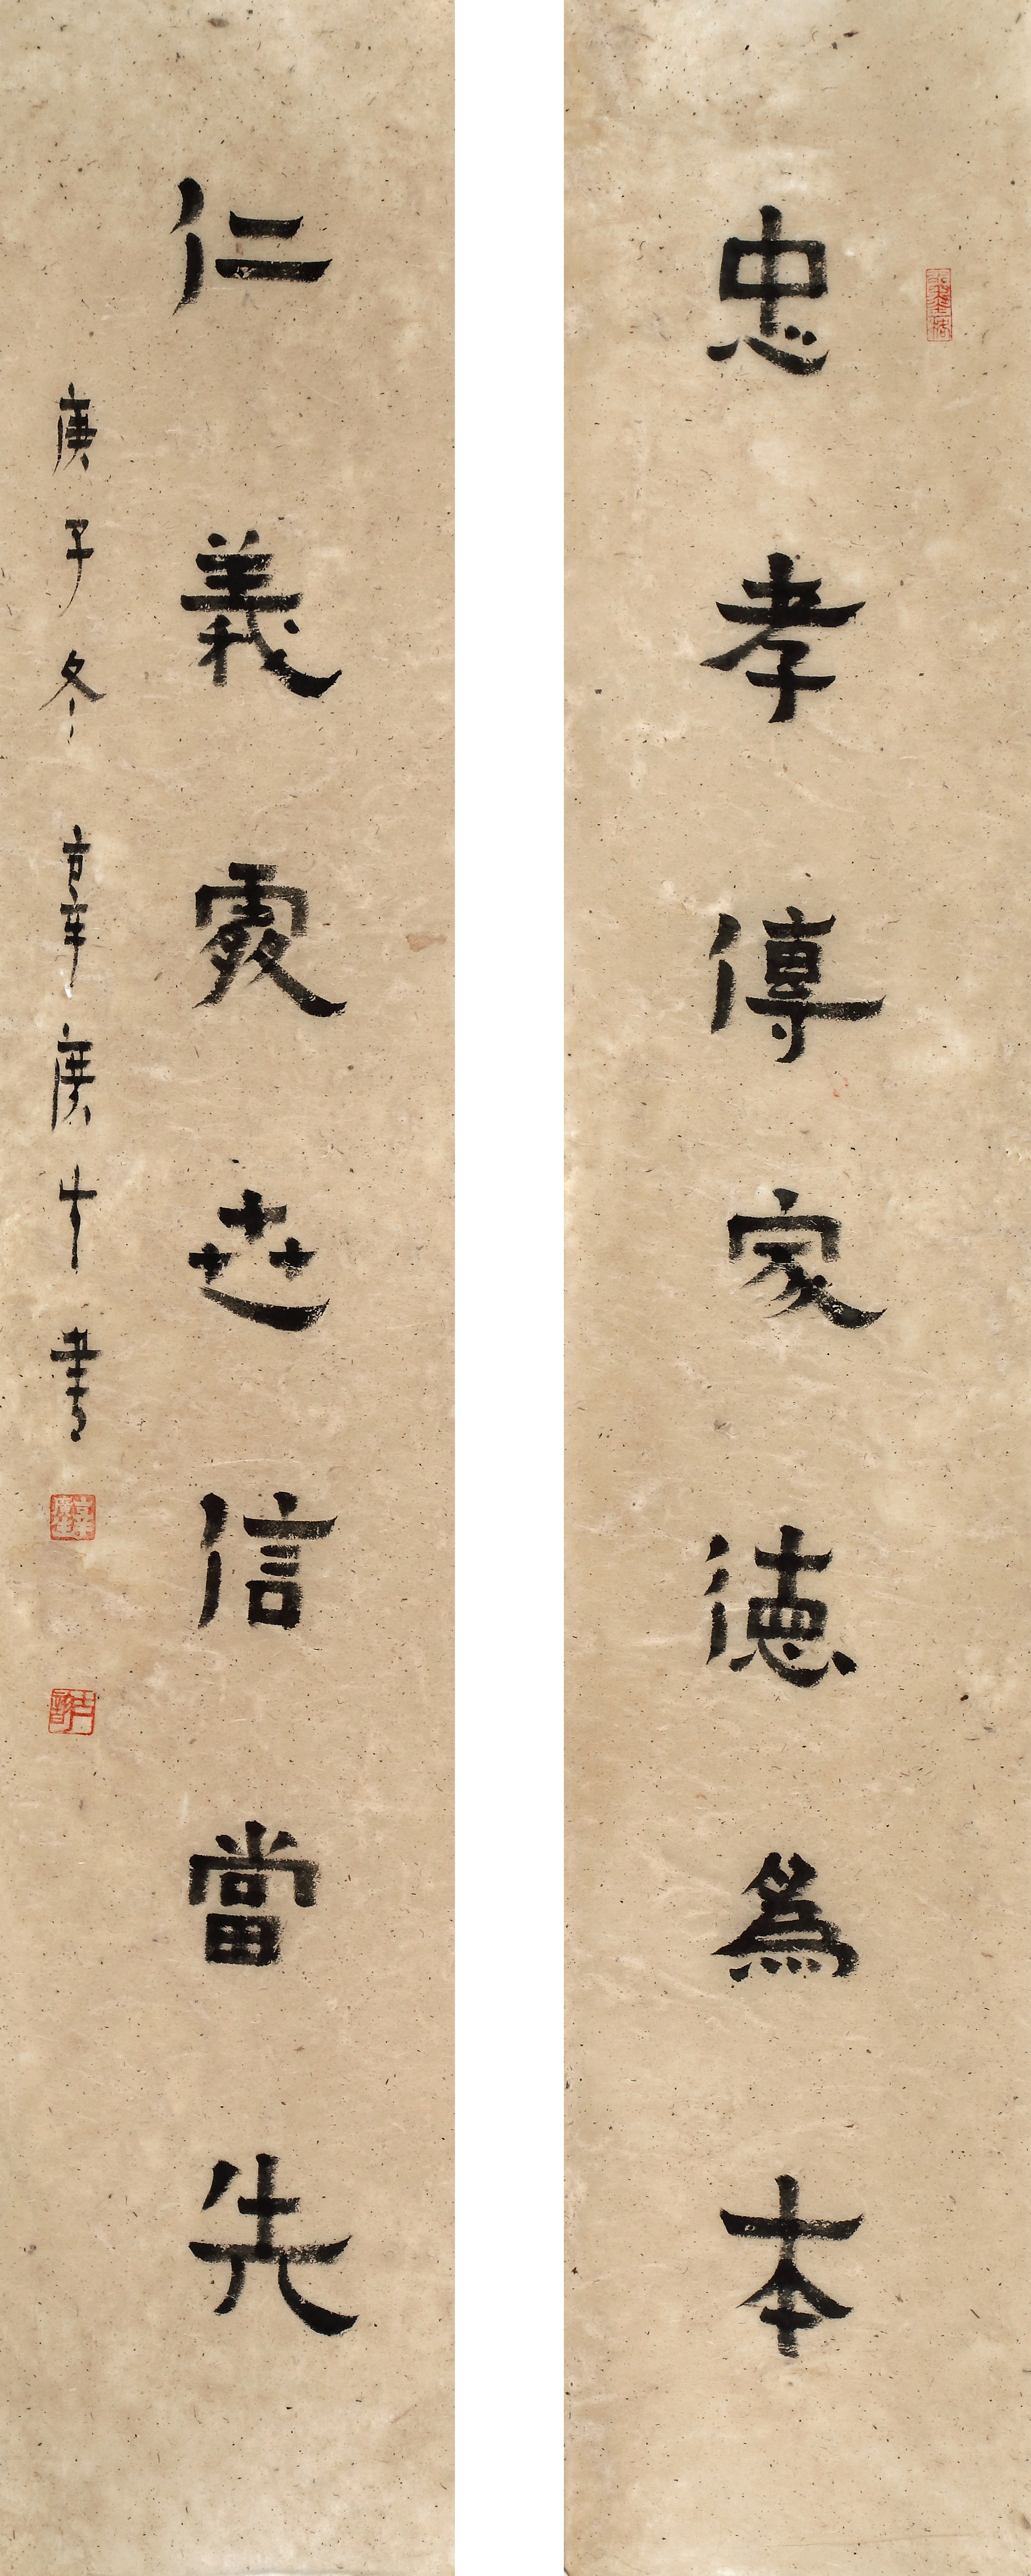 忠孝傳家德為本
仁義處世信當先
庚子冬 韋慶才書